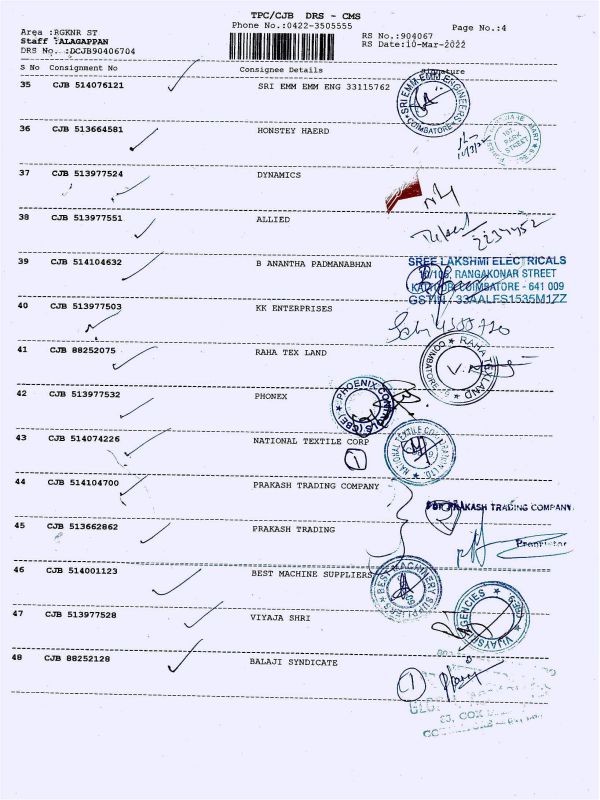 TPC/CJB DRS - CMS
Phone No.:0422-3505555
Page No.:4
Area :RGKNR ST
Staff :ALAGAPPAN
DRS No. :DCJB90406704
RS No.:904067
RS Date:10-Mar-2022
S No Consignment No Consignee Details Signature
35 CJB 514076121 SRI EMM EMM ENG 33115762
SRI EMM EMM ENGINEERS
COIMBATORE
36 CJB 513664581 HONSTEY HAERD
PARK
STREET
37 CJB 513977524 DYNAMICS
38 CJB 513977551 ALLIED
39 CJB 514104632 B ANANTHA PADMANABHAN
SREE LAKSHMI ELECTRICALS
RANGAKONAR STREET
COIMBATORE - 641 009
GSTIN : 33AALFS1535M1ZZ
40 CJB 513977503 KK ENTERPRISES
41 CJB 88252075 RAHA TEX LAND
RAHA TEXLAND
COIMBATORE
42 CJB 513977532 PHONEX
PHOENIX CONTROLS (CBE)
43 CJB 514074226 NATIONAL TEXTILE CORP
1
NATIONAL TEXTILE CORPORATION LTD.
44 CJB 514104700 PRAKASH TRADING COMPANY
PRAKASH TRADING COMPANY
45 CJB 513662862 PRAKASH TRADING
Proprietor
46 CJB 514001123 BEST MACHINE SUPPLIERS
BEST MACHINERY SUPPLIERS
47 CJB 513977528 VIYAJA SHRI
AGENCIES
48 CJB 88252128 BALAJI SYNDICATE
1